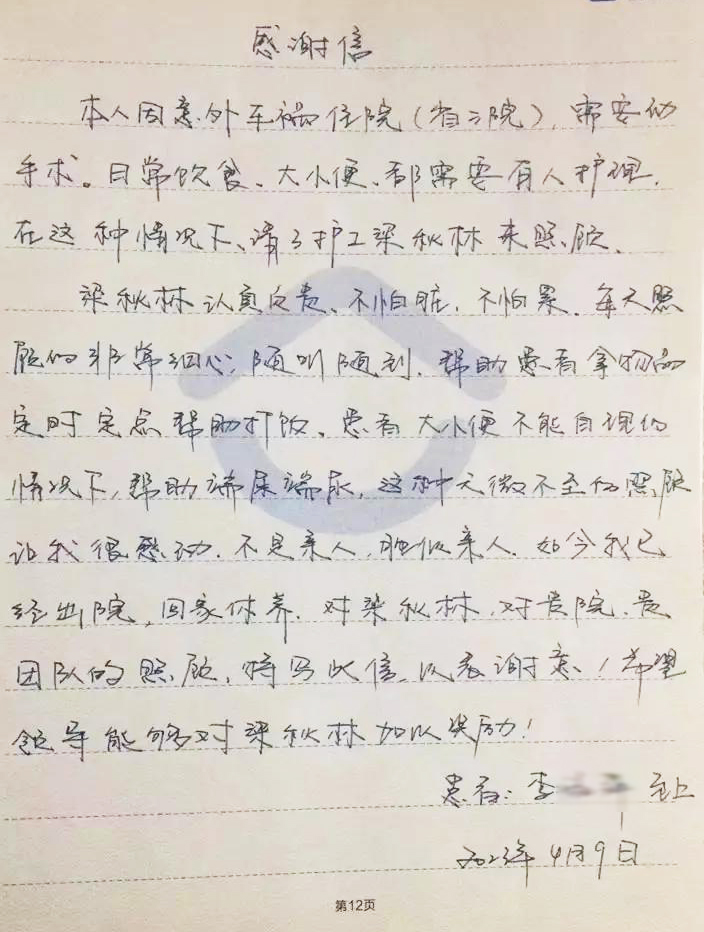 感谢信
本人因意外车祸住院（省三院），需要动
手术。日常饮食、大小便、都需要有人护理，
在这种情况下、请了护工梁秋林来照顾、
梁秋林认真负责、不怕脏，不怕累。每天照
顾的非常细心，随叫随到，帮助患者拿物品
定时定点帮助打饭、患者大小便不能自理的
情况下，帮助端屎端尿，这种无微不至的照顾
让我很感动，不是亲人，胜似亲人。如今我已
经出院，回家休养。对梁秋林，对贵院、贵
团队的照顾，特写此信，以表谢意！希望
领导能够对梁秋林加以奖励！
患者：李 至上
2023年4月9日
第12页